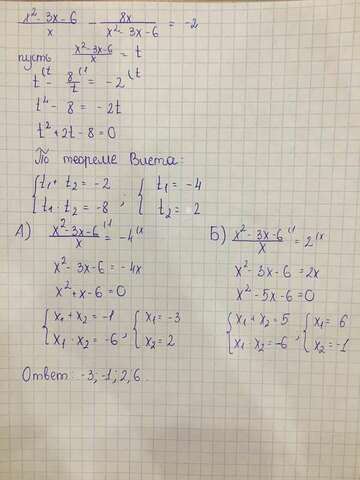 (x² - 3x - 6)/x - 8x/(x² - 3x - 6) = -2
пусть (x² - 3x - 6)/x = t
t^(t - 8/t^(1 = -2^(t
t² - 8 = -2t
t² + 2t - 8 = 0
По теореме Виета:
{ t₁ + t₂ = -2 ; { t₁ = -4
{ t₁ · t₂ = -8 { t₂ = 2
А) (x² - 3x - 6)/x^(1 = -4^(x
x² - 3x - 6 = -4x
x² + x - 6 = 0
{ x₁ + x₂ = -1 , { x₁ = -3
{ x₁ · x₂ = -6 { x₂ = 2
Б) (x² - 3x - 6)/x^(1 = 2^(x
x² - 3x - 6 = 2x
x² - 5x - 6 = 0
{ x₁ + x₂ = 5 , { x₁ = 6
{ x₁ · x₂ = -6 { x₂ = -1
Ответ: -3; -1; 2, 6.